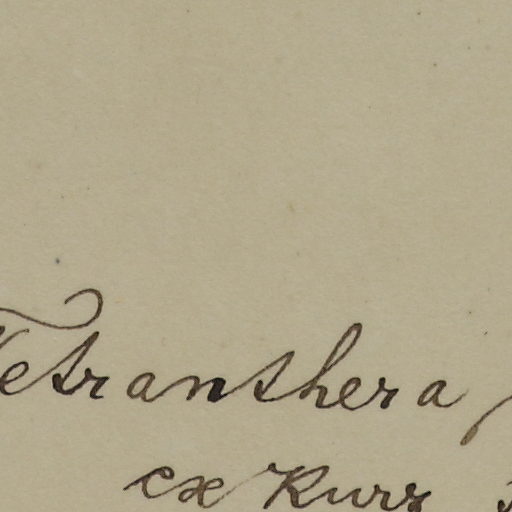 Tetranthera
ex Kurz